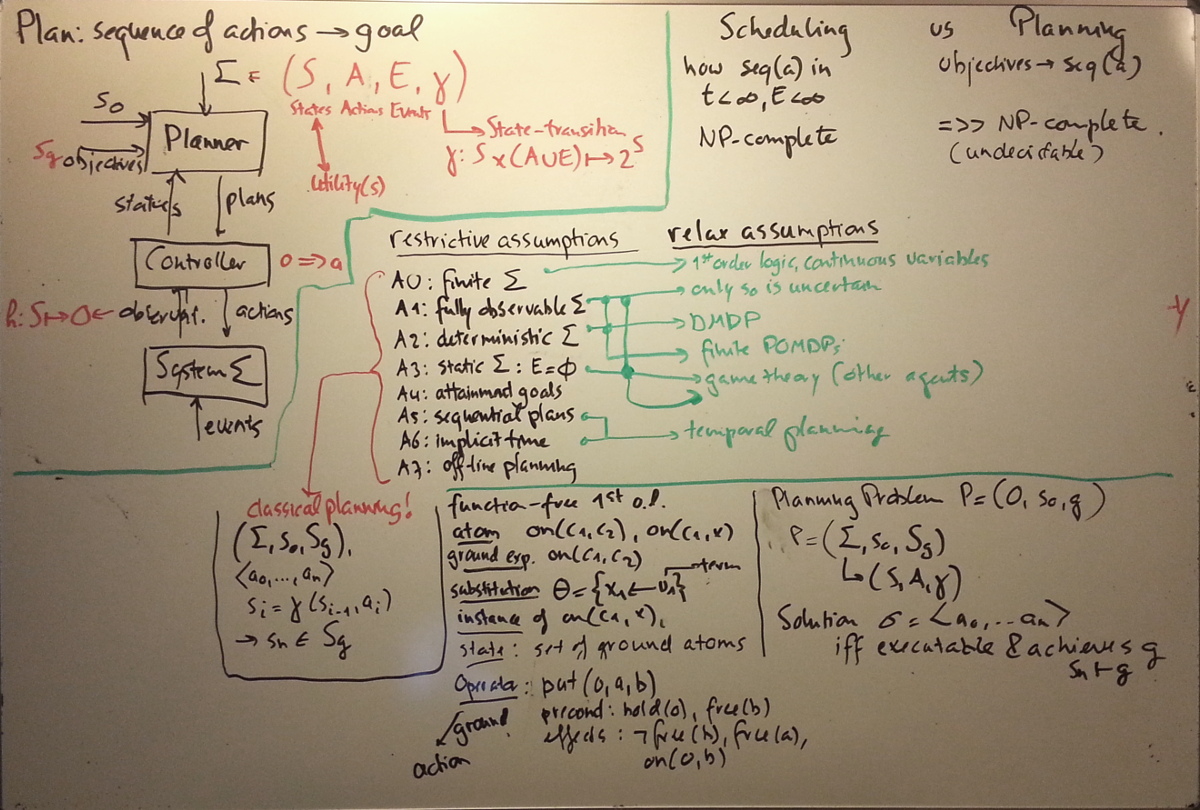 Plan: sequence of actions → goal
Σ = (S, A, E, γ)
States Actions Events
→ State-transition
γ: S x (A∪E) ↦ 2^S
Utility(s)
s0
Sg objectives
Planner
status
plans
Controller
o ⇒ a
h: S ↦ O ← observat.
actions
System Σ
events
Scheduling vs Planning
how seq(a) in
t<∞, E<∞
NP-complete
objectives → seq(a)
=>> NP-complete.
(undecidable)
restrictive assumptions
A0: finite Σ
A1: fully observable Σ
A2: deterministic Σ
A3: static Σ : E=ϕ
A4: attainmnd goals
A5: sequential plans
A6: implicit time
A7: off-line planning
relax assumptions
→ 1st order logic, continuous variables
→ only so is uncertain
→ DMDP
→ finite POMDPs
→ game theory (other agents)
→ temporal planning
classical planning!
(Σ, s0, Sg),
<a0,..., an>
si = γ(si-1, ai)
→ sn ∈ Sg
function-free 1st o.l.
atom on(c1,c2), on(c1,x)
ground exp. on(c1,c2)
term
substitution Θ={x1←v1}
instance of on(c1,x),
state: set of ground atoms
Operator: put(o,a,b)
precond: hold(o), free(b)
effects: ¬free(b), free(a),
on(o,b)
ground
action
Planning Problem P=(O, s0, g)
P=(Σ, s0, Sg)
↳(S, A, γ)
Solution σ = <a0,... an>
iff executable & achieves g
sn ⊢ g